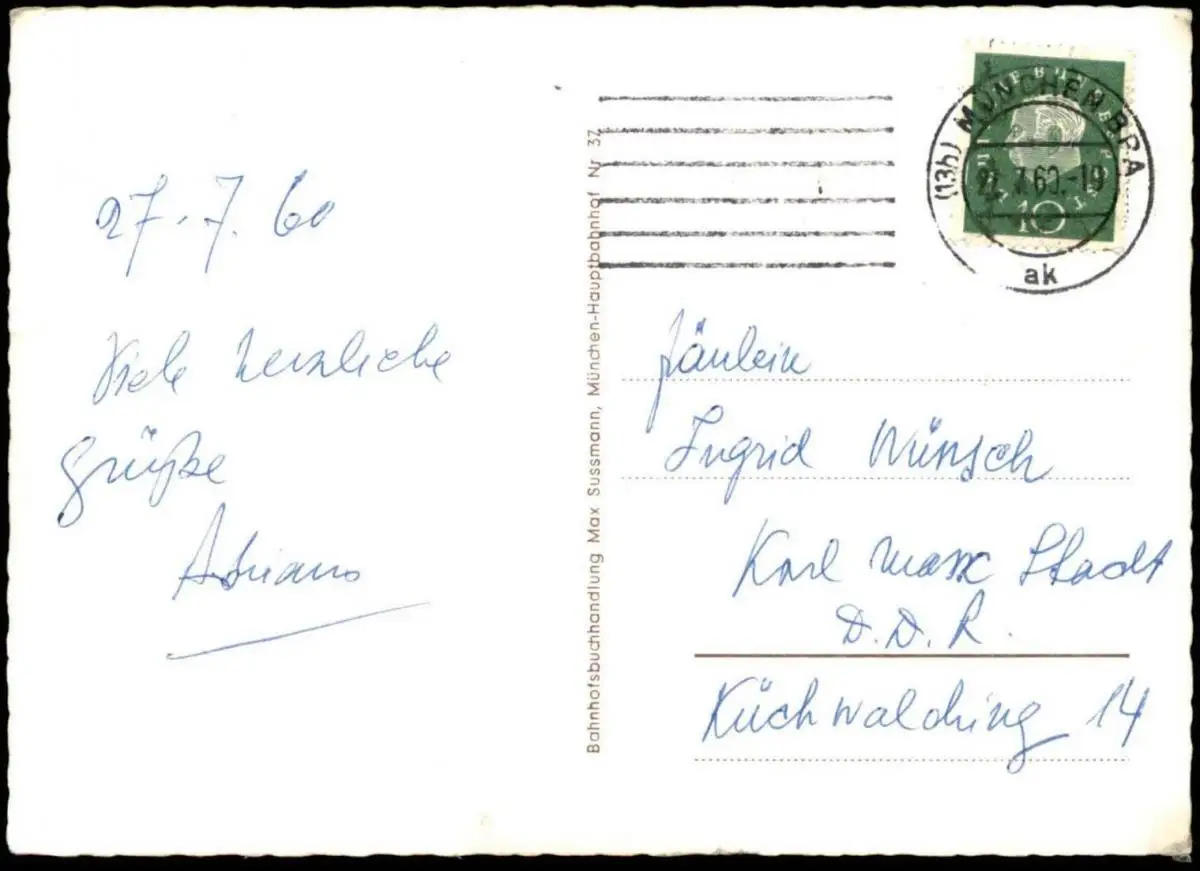 27.7.60
Viele herzliche
Grüße
Adriano
Bahnhofsbuchhandlung Max Sussmann, München-Hauptbahnhof Nr 37
(13b) MÜNCHEN BPA
27.7.60.-19
ak
DEUTSCHE BUNDESPOST
10
Fräulein
Ingrid Wünsch
Karl Marx Stadt
D.D.R.
Küchwaldring 14